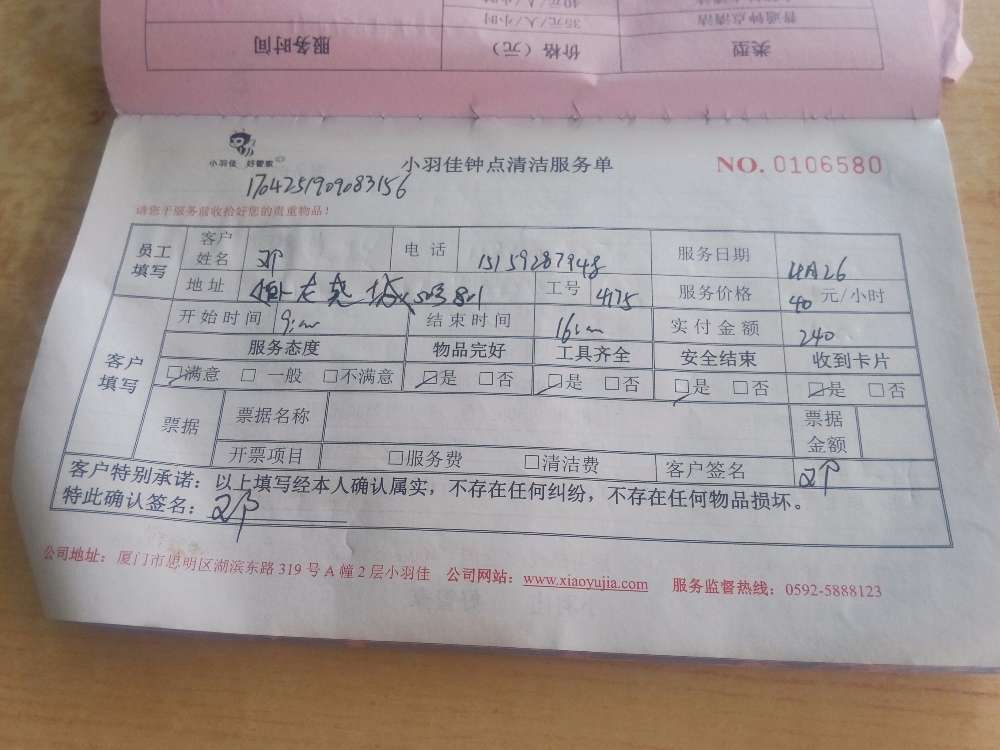 服务时间 价格（元） 类型
35元/人/小时 普通钟点清洁
40元/人/小时
小羽佳 好管家
小羽佳钟点清洁服务单 NO. 0106580
1704251909083156
请您于服务前收拾好您的贵重物品！
员工填写 客户姓名 邓 电话 15159287948 服务日期 4月26
地址 803 801 工号 4175 服务价格 40 元/小时
客户填写 开始时间 9:00 结束时间 16:00 实付金额 240
服务态度 物品完好 工具齐全 安全结束 收到卡片
☑满意 □一般 □不满意 ☑是 □否 ☑是 □否 ☑是 □否 ☑是 □否
票据 票据名称 票据金额
开票项目 □服务费 □清洁费 客户签名 邓
客户特别承诺：以上填写经本人确认属实，不存在任何纠纷，不存在任何物品损坏。
特此确认签名：邓
公司地址：厦门市思明区湖滨东路 319 号 A 幢 2 层小羽佳 公司网站：www.xiaoyujia.com 服务监督热线：0592-5888123